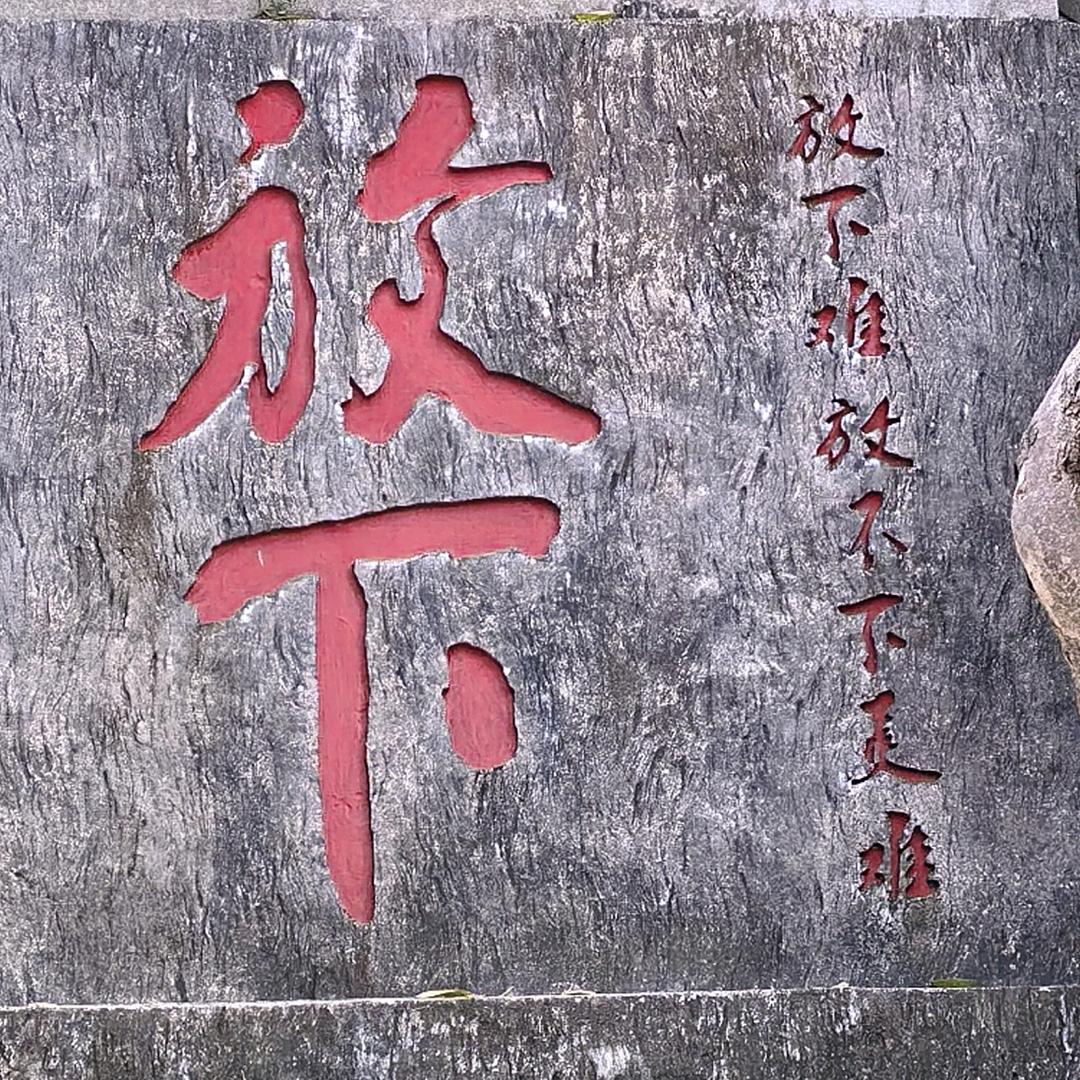 放下难放不下更难
放下